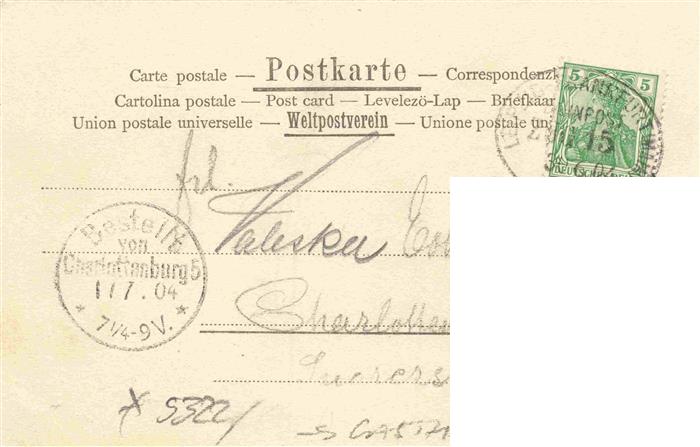 Carte postale — Postkarte — Correspondenzk
Cartolina postale — Post card — Levelező-Lap — Briefkaar
Union postale universelle — Weltpostverein — Unione postale un
5 5
15
Frl.
Valeska
Bestellt
von
Charlottenburg 5
1 1 7 . 04
* 7 1/4-9 V. *
Charlotten
* 5322/